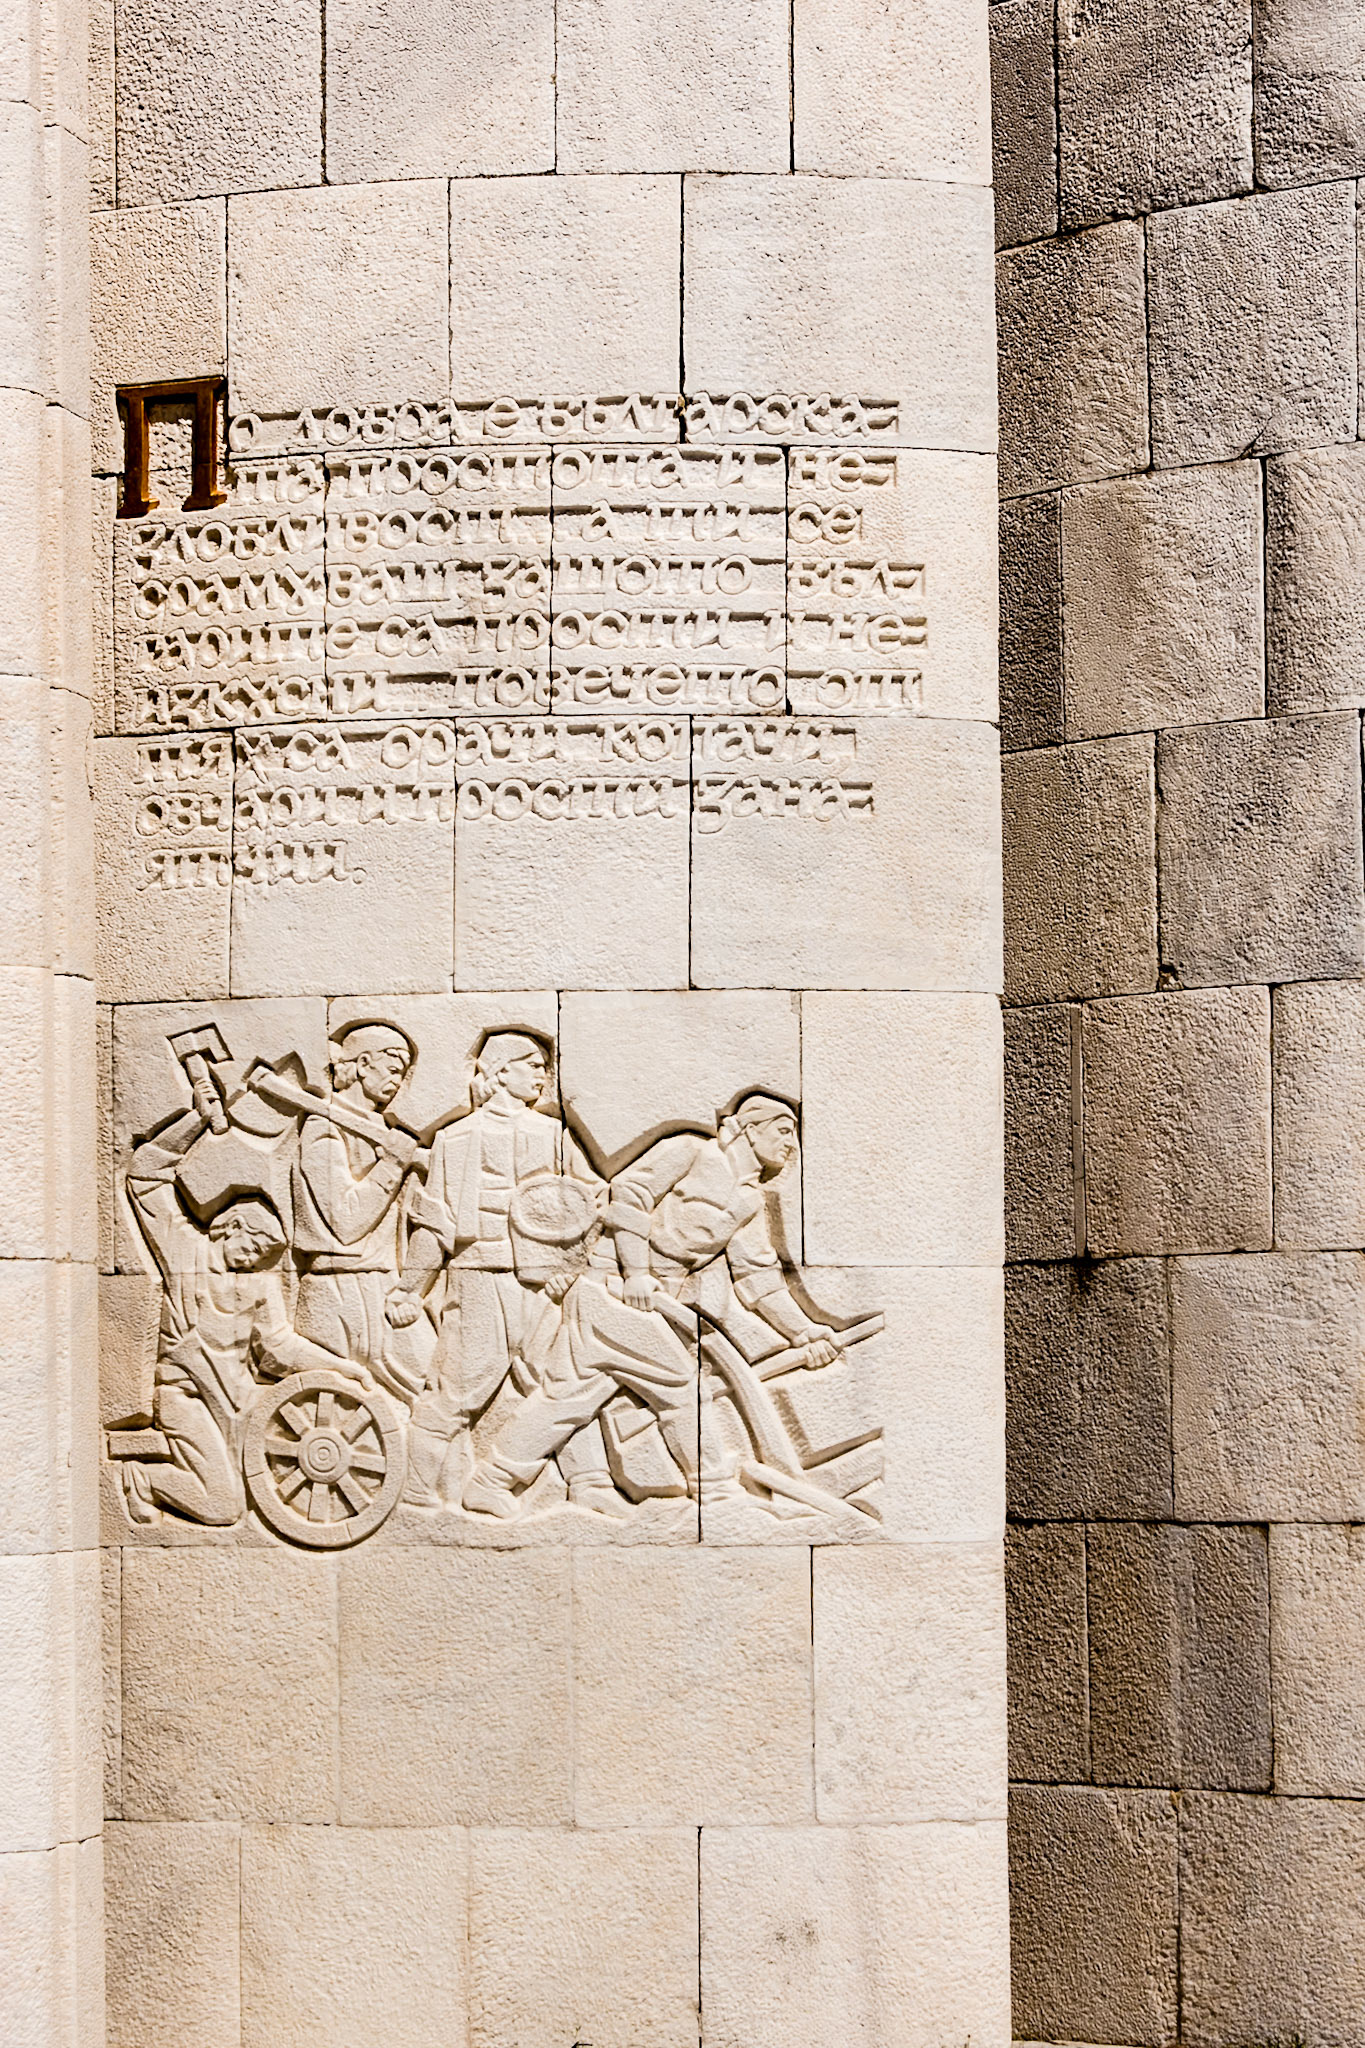 По добра е българска-
та простота и не-
злобливост... а ти се
срамуваш защото бъл-
гарите са прости и не-
изкусни... повечето от
тях са орачи копачи
овчари и прости зана-
ятчии.